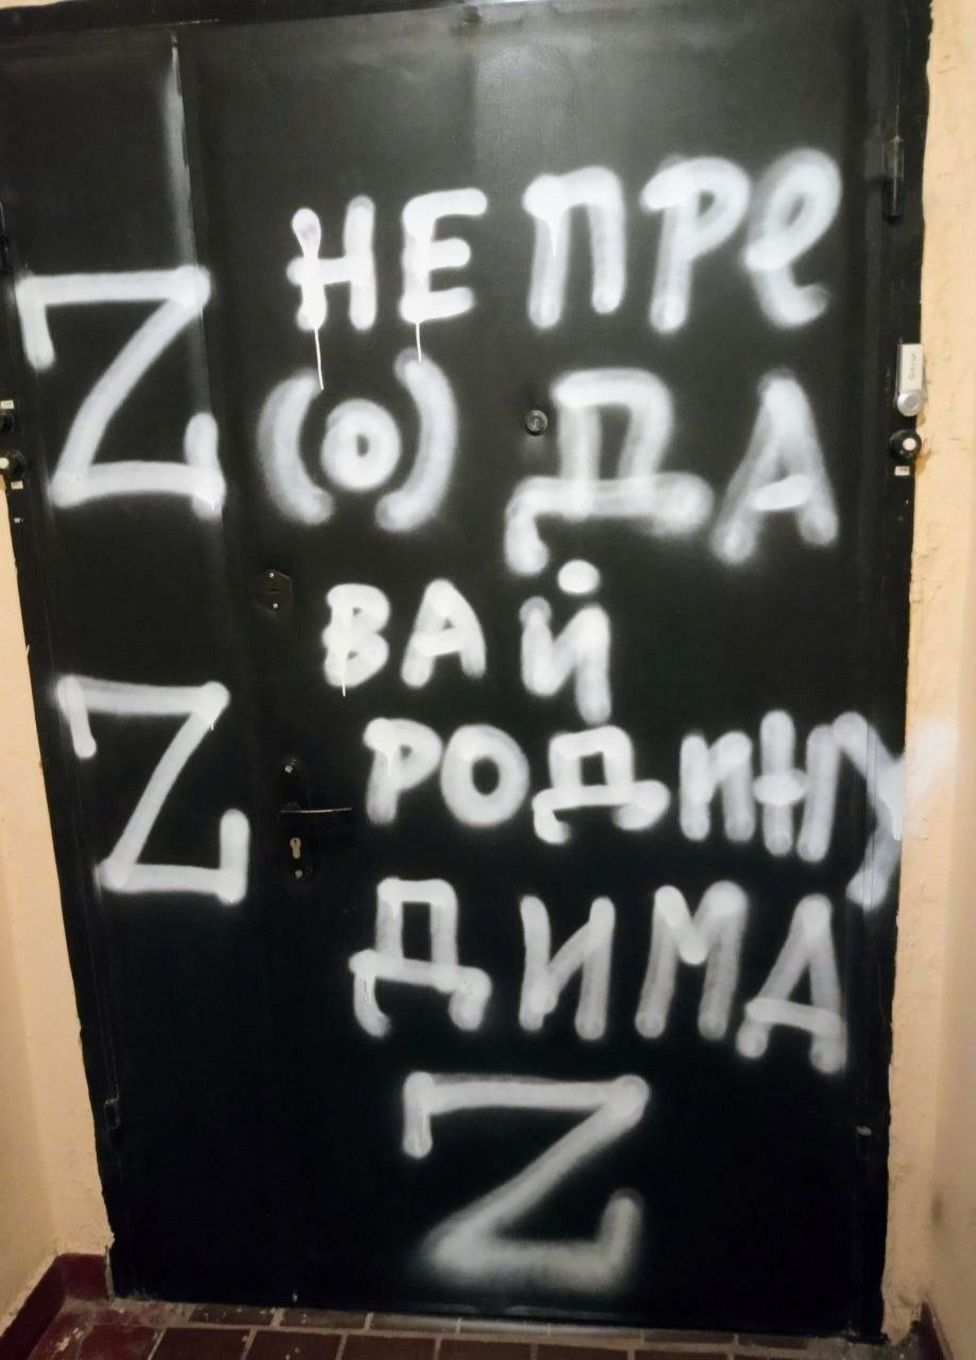 НЕ ПРЕ
Z (О) ДА
ВАЙ
Z РОДИНУ
ДИМА
Z